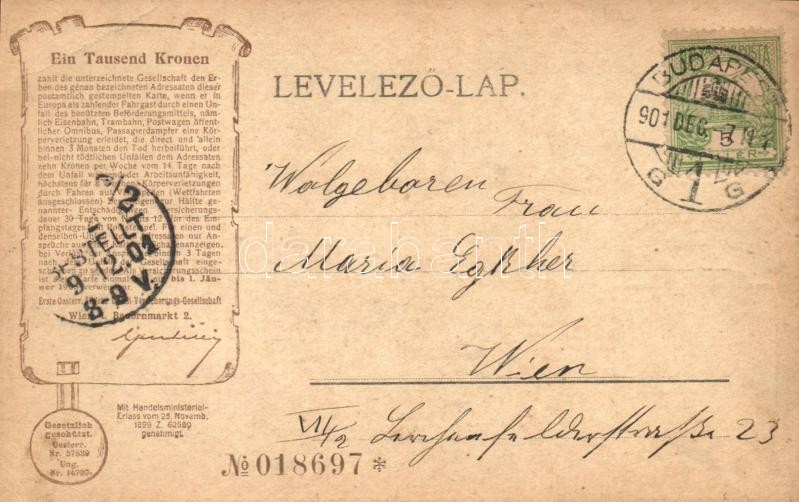 Ein Tausend Kronen
zahlt die unterzeichnete Gesellschaft den Er-
ben des genau bezeichneten Adressaten dieser
postamtlich gestempelten Karte, wenn er in
Europa als zahlender Fahrgast durch einen Un-
fall des benützten Beförderungsmittels, näm-
lich Eisenbahn, Trambahn, Postwagen öffent-
licher Omnibus, Passagierdampfer eine Kör-
perverletzung erleidet, die direct und allein
binnen 3 Monaten den Tod herbeiführt, oder
bei nicht tödtlichen Unfällen dem Adressaten
zehn Kronen per Woche vom 14. Tage nach
dem Unfall Arbeitsunfähigkeit,
höchstens für Körperverletzungen
durch Fahren auf (Wettfahrten
ausgeschlossen) zur Hälfte ge-
nannter Versicherungs-
dauer 30 Tage von Nachts 12 des Em-
pfangstages
bis 1. Jän-
Erste Oesterr. Versicherungs-Gesellschaft
Wien, I. Bauernmarkt 2.
Gesetzlich
geschützt.
Oesterr.
Nr. 57539
Ung.
Mit Handelsministerial-
Erlass vom 25. Novemb.
1899 Z. 62580
genehmigt.
№ 018697 *
LEVELEZŐ-LAP.
BUDAPEST
901 DEC. 7
G 1 G
BESTELLT
9.12.01
8-9 V.
Wolgeboren
Frau
Maria Egkher
Wien
VII/2 Lerchenfelderstraße 23
darabanth